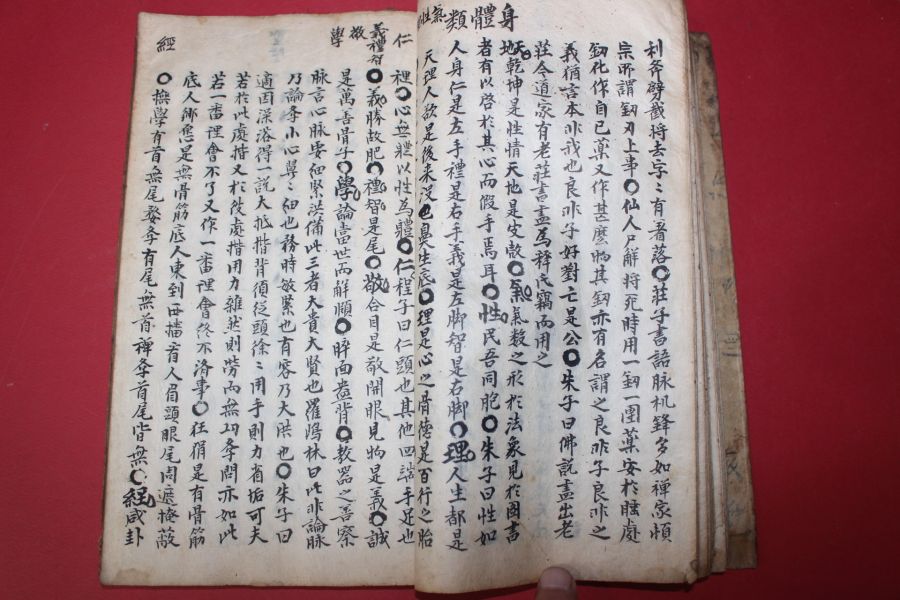 利斧劈截將去字〻有着落〇莊子書語脉机鋒多如禪家頓
宗所謂釼刃上事〇仙人尸解將死時用一釼一團藥安於睡處
釼化作自己藥又作甚麽物其釼亦有名謂之良非子良非之
義猶言本非我也良非子好對亡是公〇朱子曰佛説盡出老
莊今道家有老莊書盡爲釋氏竊而用之
身體類
氣 性
天地乾坤是性情天地是定殼〇氣氣數之形於法象見於圖書
者有以啓於其心而假手焉耳〇性民吾同胞〇朱子曰性如
人身仁是左手禮是右手義是左脚智是右脚〇理人生都是
天理人欲是後来没巴臭生底〇理是心之骨德是百行之胎
仁
義禮智
敬
學
經
裡〇心無體以性為體〇仁程子曰仁頭也其他四端手足也
〇義勝故肥〇禮智是尾〇敬合目是敬開眼見物是義〇誠
是萬善骨子〇學論當世而解頤〇睟面盎背〇教器之善察
脉言心脉要細緊洪備此三者大貴大賢也羅鶴林曰此非論脉
乃論季小心翼〻細也務時敏緊也有容乃大洪也〇朱子曰
適因澡浴得一説大抵揩背須從頭徐〻用手則力省垢可去
若於此處揩又於彼處揩用力雖然則勞而無功季問亦如此
若一番理會不了又作一番理會終不濟事〇狂狷是有骨筋
底人鄉愿是無骨筋底人東到西撞看人眉頭眼尾周遮掩蔽
〇撫學有首無尾婺季有尾無首禅季首尾皆無〇經咸卦